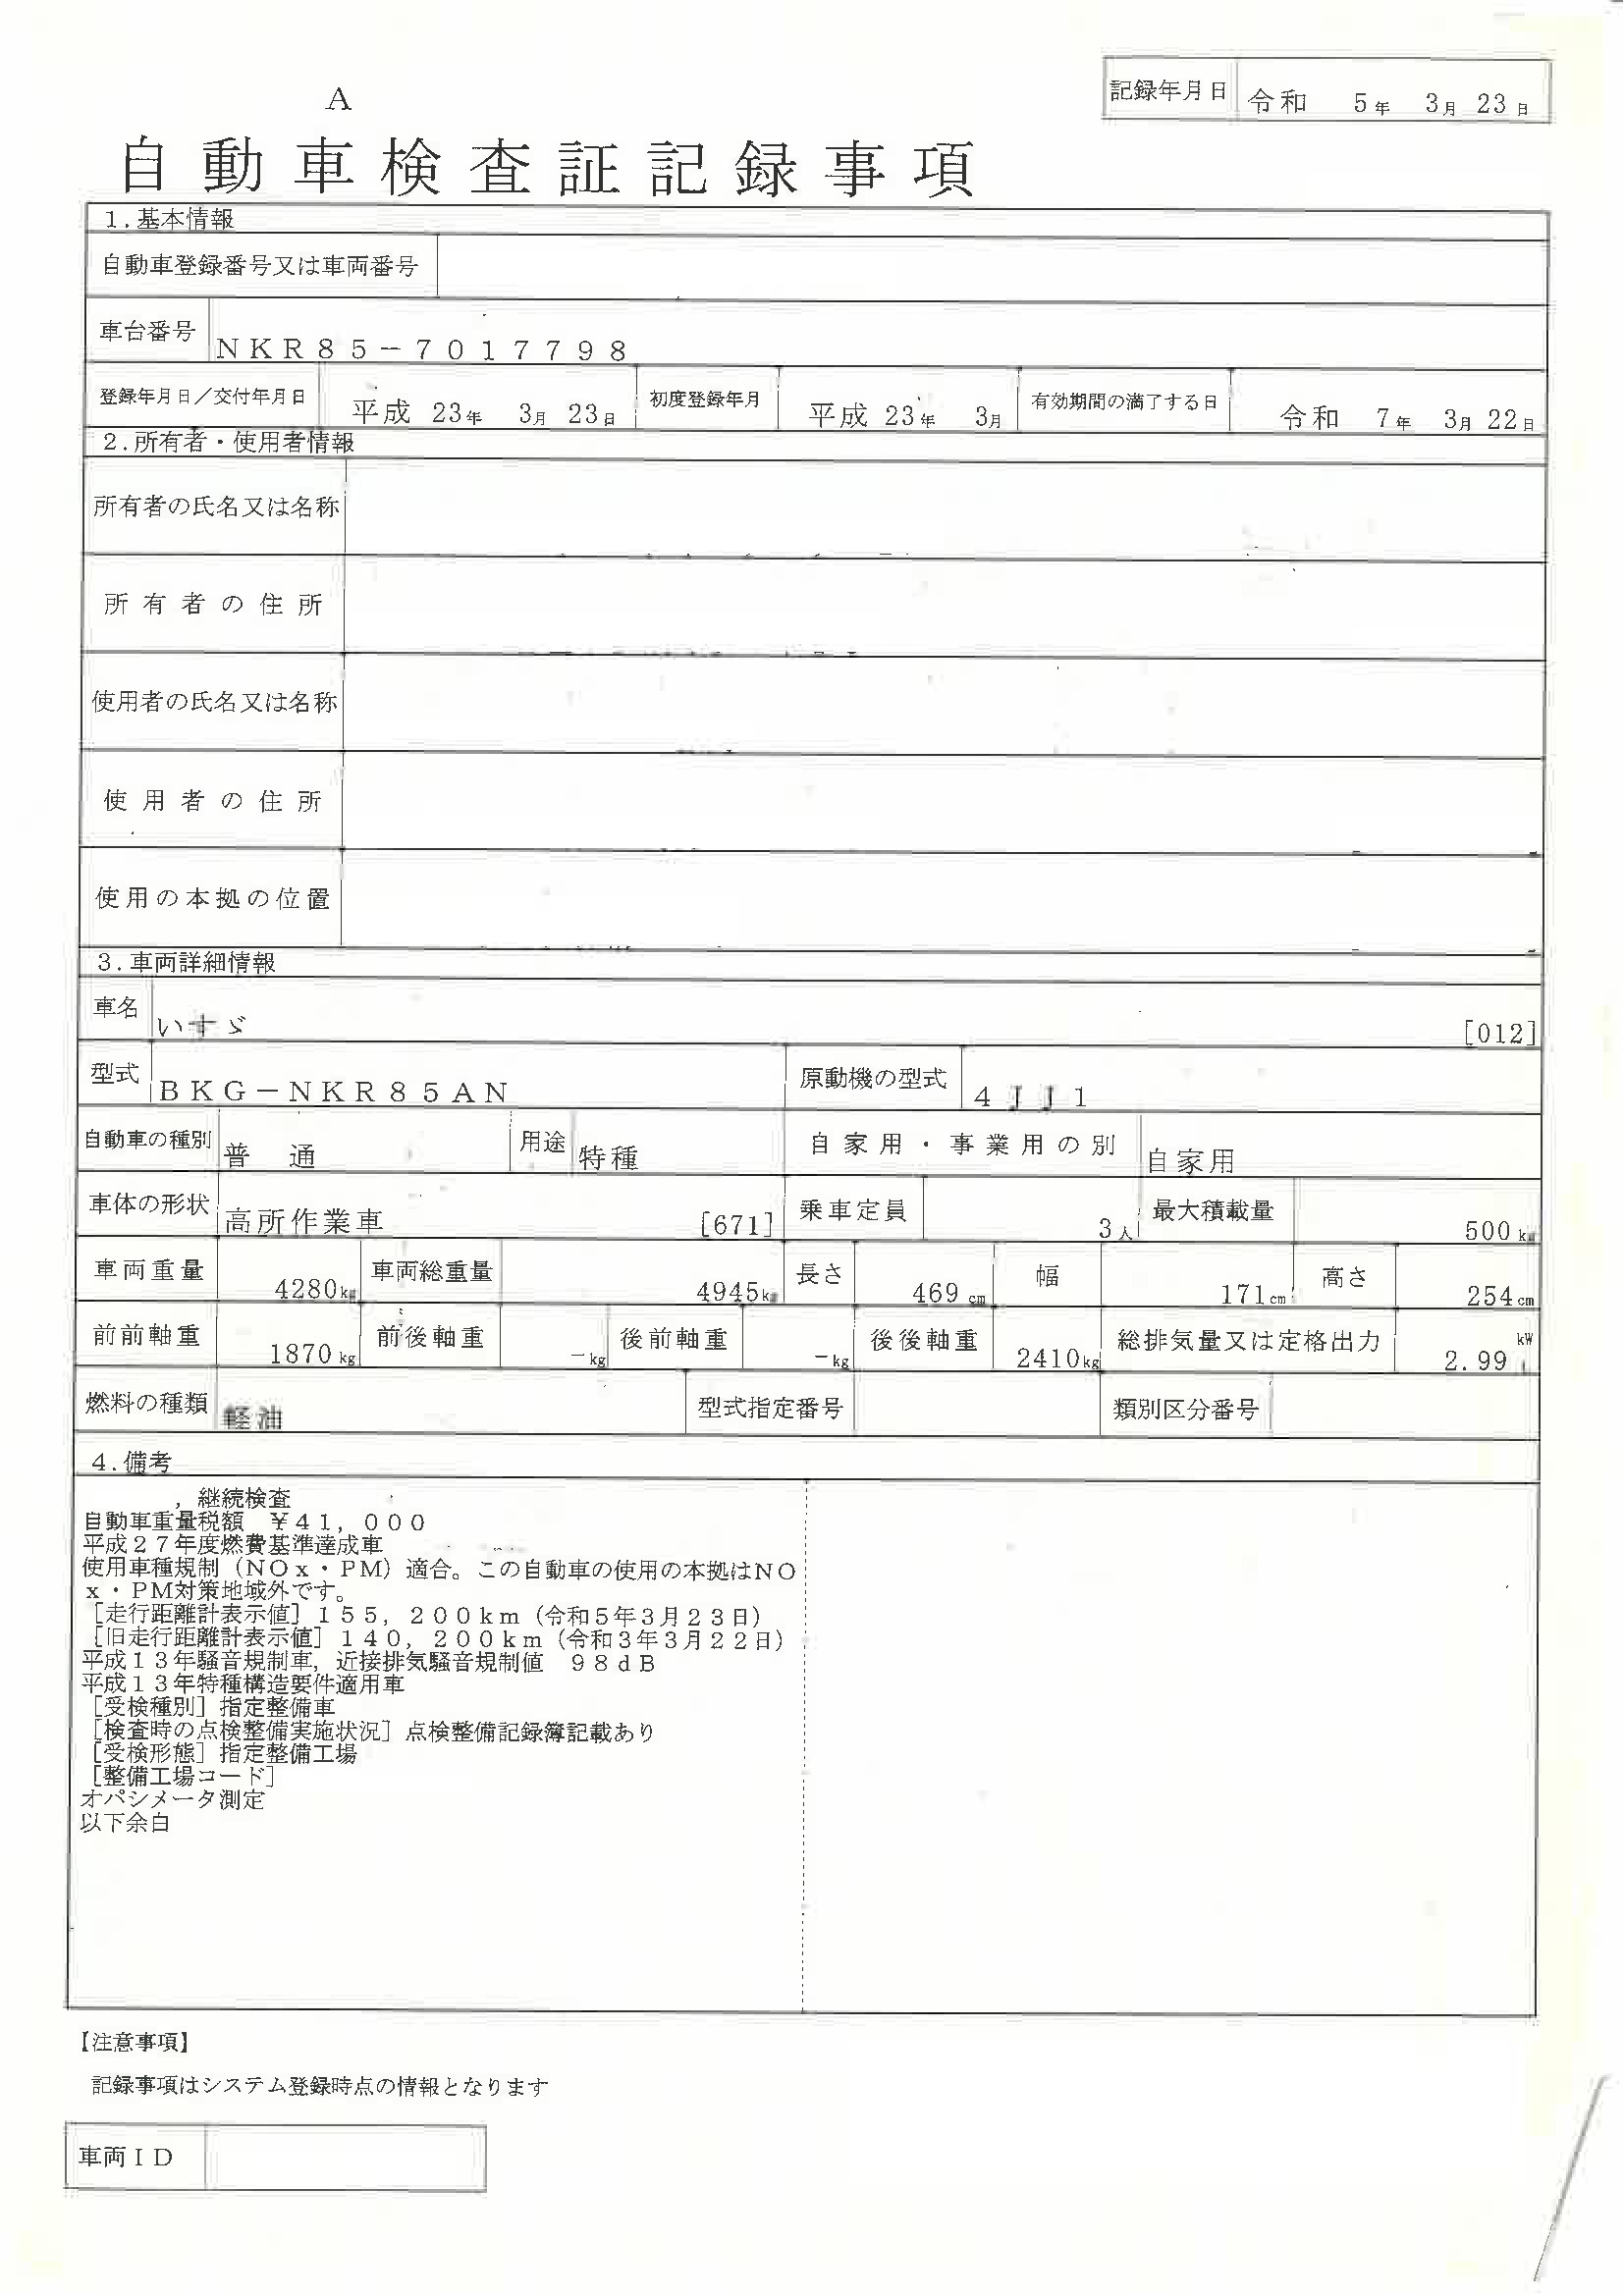 記録年月日 令和 5年 3月 23日
A
自動車検査証記録事項
1.基本情報
自動車登録番号又は車両番号
車台番号 NKR85-7017798
登録年月日／交付年月日 平成 23年 3月 23日 初度登録年月 平成 23年 3月 有効期間の満了する日 令和 7年 3月 22日
2.所有者・使用者情報
所有者の氏名又は名称
所有者の住所
使用者の氏名又は名称
使用者の住所
使用の本拠の位置
3.車両詳細情報
車名 いすゞ [012]
型式 BKG-NKR85AN 原動機の型式 4JJ1
自動車の種別 普通 用途 特種 自家用・事業用の別 自家用
車体の形状 高所作業車 [671] 乗車定員 3人 最大積載量 500kg
車両重量 4280kg 車両総重量 4945kg 長さ 469cm 幅 171cm 高さ 254cm
前前軸重 1870kg 前後軸重 -kg 後前軸重 -kg 後後軸重 2410kg 総排気量又は定格出力 2.99 kW
燃料の種類 軽油 型式指定番号 類別区分番号
4.備考
，継続検査
自動車重量税額 ￥41，000
平成27年度燃費基準達成車
使用車種規制（NOx・PM）適合。この自動車の使用の本拠はNO
x・PM対策地域外です。
［走行距離計表示値］155，200km（令和5年3月23日）
［旧走行距離計表示値］140，200km（令和3年3月22日）
平成13年騒音規制車，近接排気騒音規制値 98dB
平成13年特種構造要件適用車
［受検種別］指定整備車
［検査時の点検整備実施状況］点検整備記録簿記載あり
［受検形態］指定整備工場
［整備工場コード］
オパシメータ測定
以下余白
【注意事項】
記録事項はシステム登録時点の情報となります
車両ID